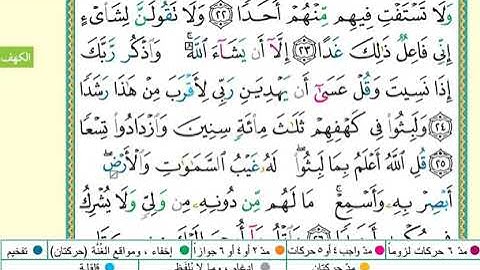 وَلَا تَسْتَفْتِ فِيهِم مِّنْهُمْ أَحَدًا ﴿٢٢﴾ وَلَا تَقُولَنَّ لِشَا۟ىْءٍ
إِنِّى فَاعِلٌ ذَٰلِكَ غَدًا ﴿٢٣﴾ إِلَّآ أَن يَشَآءَ ٱللَّهُ ۚ وَٱذْكُر رَّبَّكَ
الكهف
إِذَا نَسِيتَ وَقُلْ عَسَىٰٓ أَن يَهْدِيَنِ رَبِّى لِأَقْرَبَ مِنْ هَٰذَا رَشَدًا
﴿٢٤﴾ وَلَبِثُوا۟ فِى كَهْفِهِمْ ثَلَٰثَ مِا۟ئَةٍ سِنِينَ وَٱزْدَادُوا۟ تِسْعًا
﴿٢٥﴾ قُلِ ٱللَّهُ أَعْلَمُ بِمَا لَبِثُوا۟ ۖ لَهُۥ غَيْبُ ٱلسَّمَٰوَٰتِ وَٱلْأَرْضِ ۖ
أَبْصِرْ بِهِۦ وَأَسْمِعْ ۚ مَا لَهُم مِّن دُونِهِۦ مِن وَلِىٍّ وَلَا يُشْرِكُ
مدّ ٦ حركات لزوماً مدّ واجب ٤ أو ٥ حركات مدّ ٢ أو ٤ أو ٦ جوازاً إخفاء ، ومواقع الغُنَّة (حركتان) تفخيم
مدّ حركتان إدغام ، وما لا يُلفَظ قلقلة